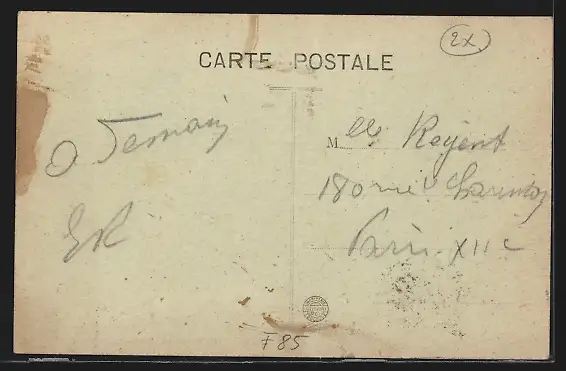 2x
CARTE POSTALE
O Demain
ER
M elle Regent
180 rue Charenton
Paris XIIe
F85